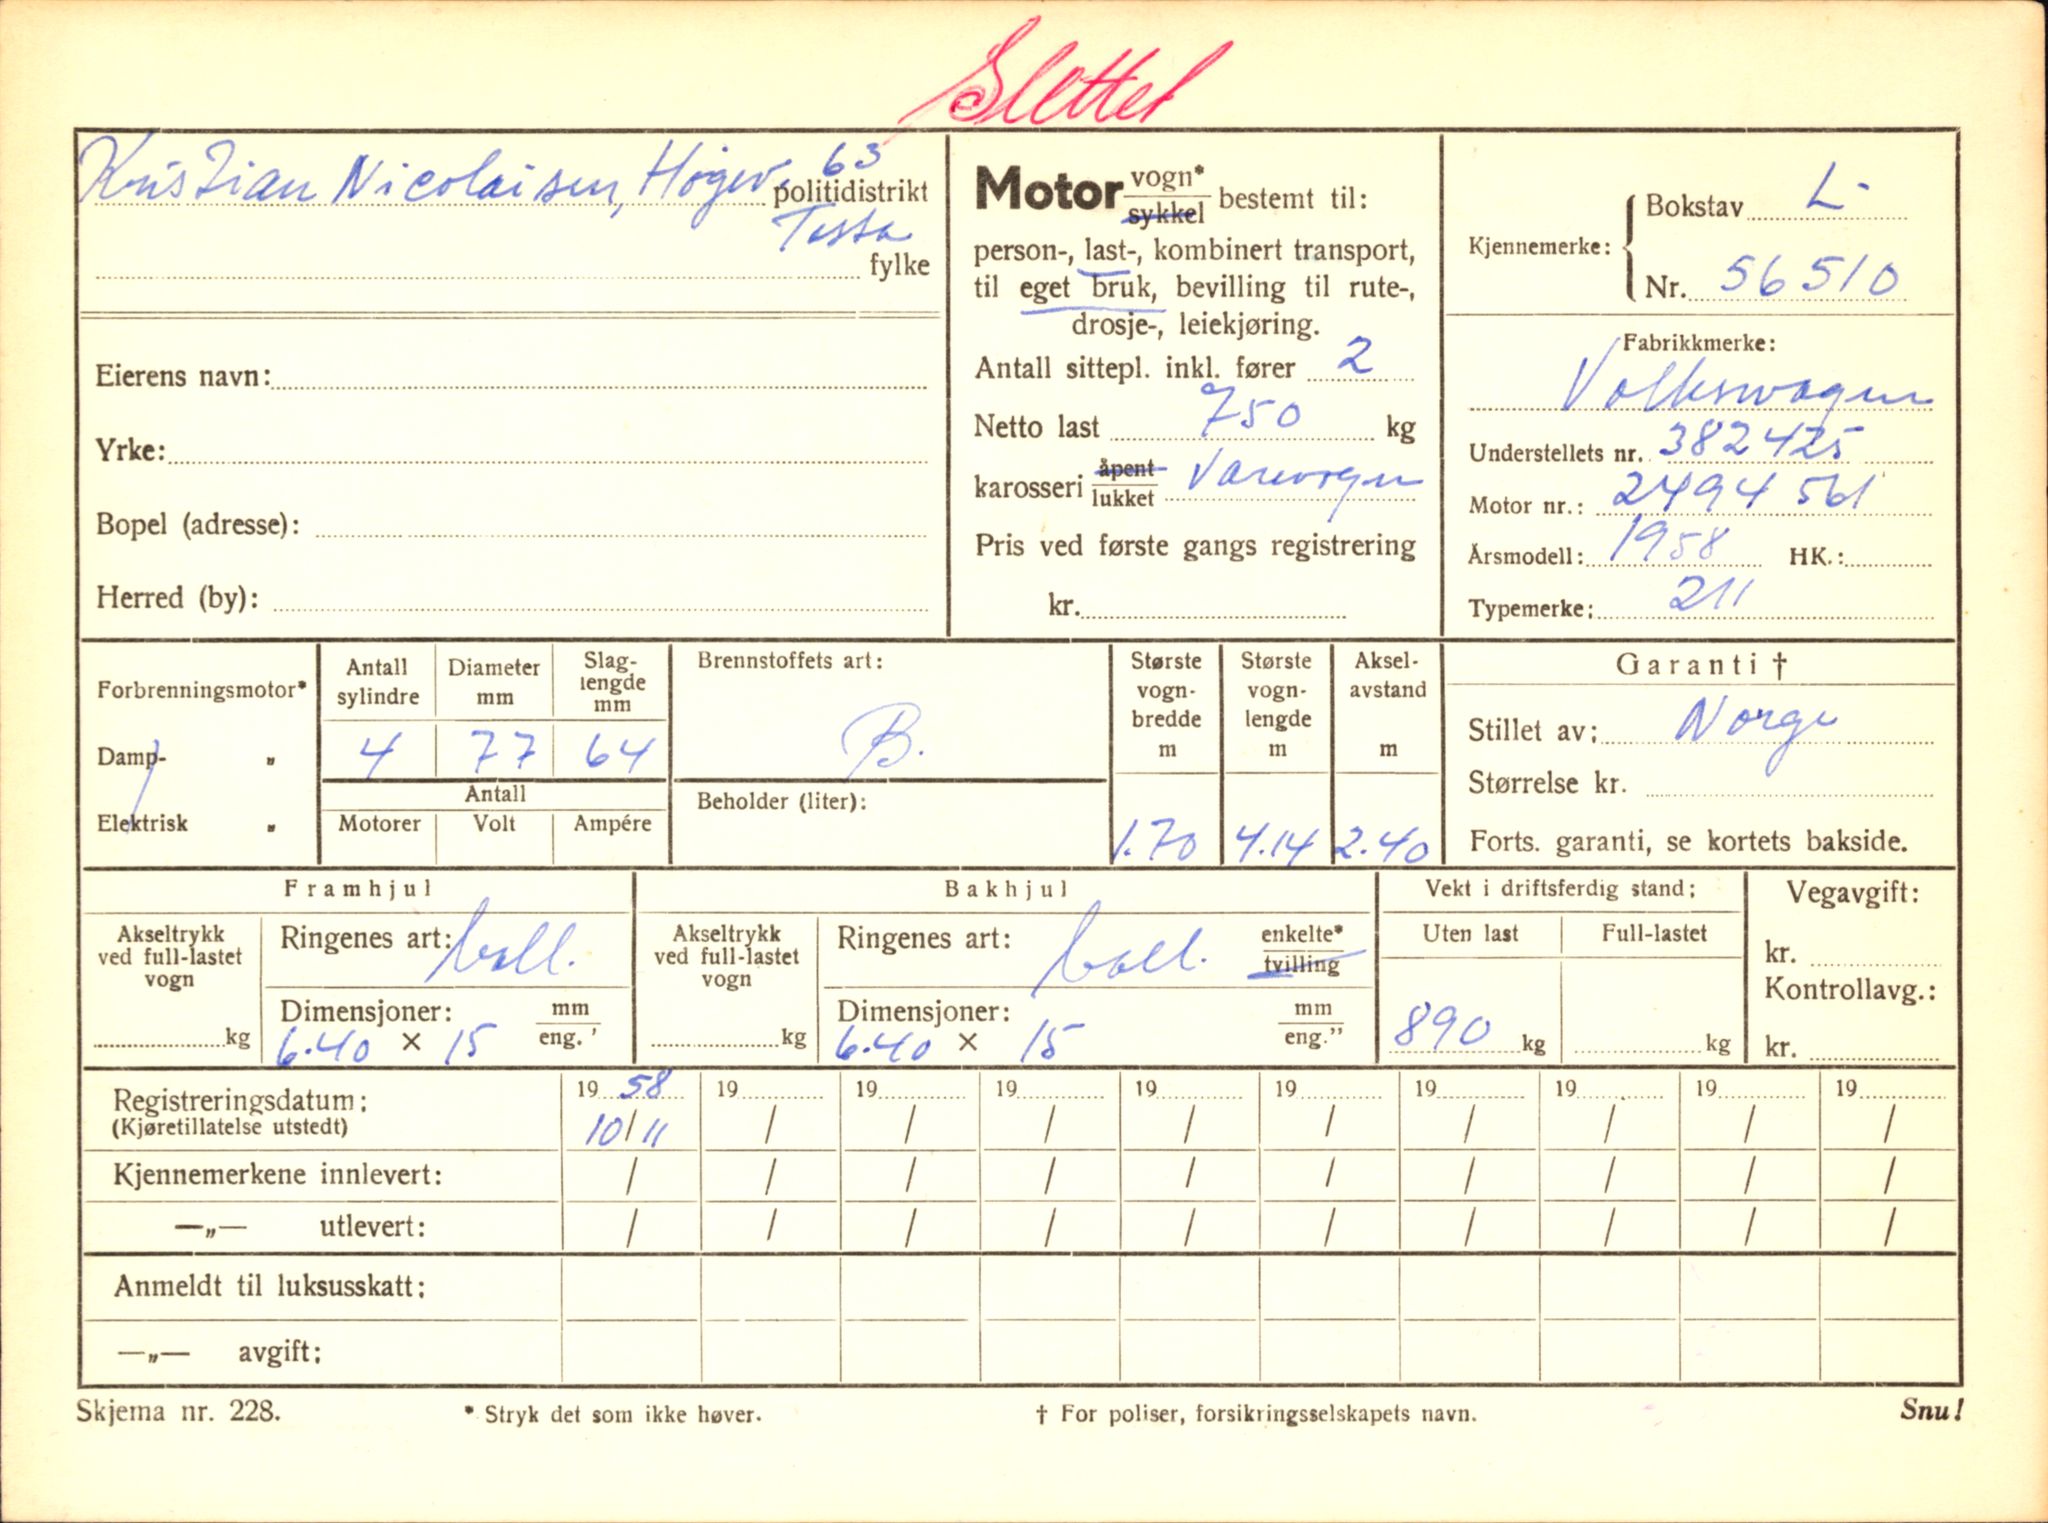 Slettet
Kristian Nicolaisen, Høgev. 63
politidistrikt
Tasta
fylke
Eierens navn:
Yrke:
Bopel (adresse):
Herred (by):
Motor vogn* sykkel bestemt til:
person-, last-, kombinert transport,
til eget bruk, bevilling til rute-,
drosje-, leiekjøring.
Antall sittepl. inkl. fører 2
Netto last 750 kg
karosseri åpent lukket Varevogn
Pris ved første gangs registrering
kr.
Kjennemerke: Bokstav L-
Nr. 56510
Fabrikkmerke:
Volkswagen
Understellets nr. 382425
Motor nr.: 2494561
Årsmodell: 1958 HK.:
Typemerke: 211
Forbrenningsmotor*
Damp- „
Elektrisk „
Antall sylindre
4
Diameter mm
77
Slag-
lengde
mm
64
Antall
Motorer Volt Ampére
Brennstoffets art:
B.
Beholder (liter):
Største
vogn-
bredde
m
1.70
Største
vogn-
lengde
m
4.14
Aksel-
avstand
m
2.40
Garanti †
Stillet av: Norge
Størrelse kr.
Forts. garanti, se kortets bakside.
Framhjul
Akseltrykk
ved full-lastet
vogn
kg
Ringenes art: ball.
Dimensjoner: mm
6.40 × 15 eng.'
Bakhjul
Akseltrykk
ved full-lastet
vogn
kg
Ringenes art: ball. enkelte*
tvilling
Dimensjoner: mm
6.40 × 15 eng."
Vekt i driftsferdig stand:
Uten last Full-lastet
890 kg kg
Vegavgift:
kr.
Kontrollavg.:
kr.
Registreringsdatum: 19 58 19 19 19 19 19 19 19 19 19
(Kjøretillatelse utstedt) 10/11 / / / / / / / / /
Kjennemerkene innlevert: / / / / / / / / / /
—„— utlevert: / / / / / / / / / /
Anmeldt til luksusskatt:
—„— avgift:
Skjema nr. 228. * Stryk det som ikke høver. † For poliser, forsikringsselskapets navn. Snu!